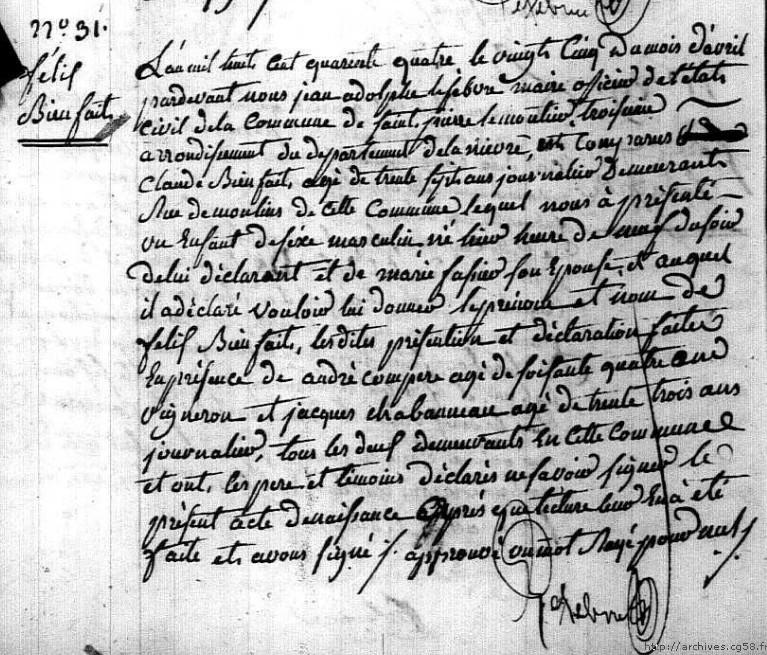 Lefebvre
N.o 31.
félis
Bienfait,
L'an mil huit cent quarente quatre le vingt Cinq du mois d'avril
pardevant nous jean adolphe lefebvre maire officier de l'état
civil de la Commune de saint pierre lemoutier troisieme
arrondissement du departement de la nievre, est Comparus
Claude Bienfait, agé de trente sept ans journalier Demeurant
Rue de moulins de Cette Commune lequel nous à présenté
un Enfant de sexe masculin né hier heure de neuf du soir
de lui déclarant et de marie son Epouse, et auquel
il a déclaré vouloir lui donner le prénom et nom de
felis Bienfait, lesdites présentation et déclaration faites
En présence de andré compere agé de soisante quatre ans
vigneron et jacques chabanneau agé de trente trois ans
journalier, tous les deux demeurants En Cette Commune
et ont, les pere et témoins déclarés ne savoir signer le
présent acte de naissance après que lecture leur En à été
faite et avons signé ./. approuvé un mot Rayé pour nul ./.
Lefebvre
http://archives.cg58.fr